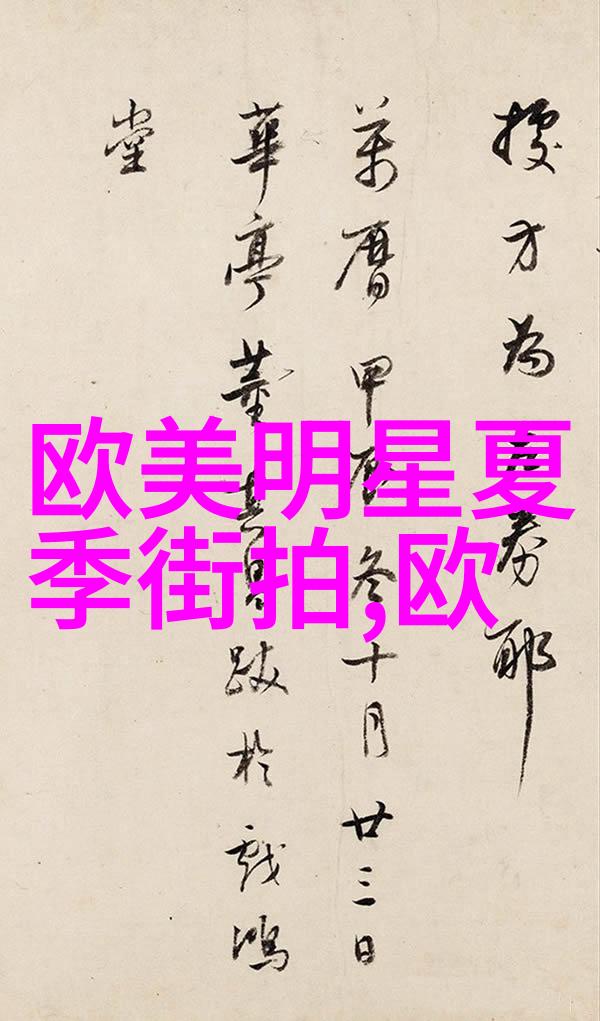 方為券耶
萬曆甲辰冬十月廿三日
華亭董其昌跋於戲鴻
堂
欧美明星夏
季街拍,欧